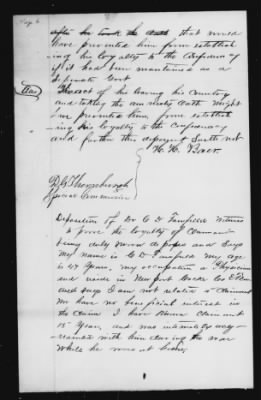 Page 6
after he took the oath that would
have prevented him from establish
-ing his loyalty to the Confederacy
if it had been maintained as a
separate Govt
The act of his leaving his Country
and taking the amnesty Oath might
have prevented him from establish
-ing his loyalty to the confederacy
and further this deponent saith not
H. H. Baer
R G Thornburgh
Special Commissioner
Deposition of Dr C D Fairfield witness
to prove the loyalty of Claimant
being duly sworn deposes and Says
My name is C D Fairfield my age
is 47 Years, my occupation a Physician
and reside in New
and says I am not related to Claimant
have no beneficial interest in
the Claim I have known claimant
15 Years, and was intimately acq-
-uainted with him during the war
while he was at home,